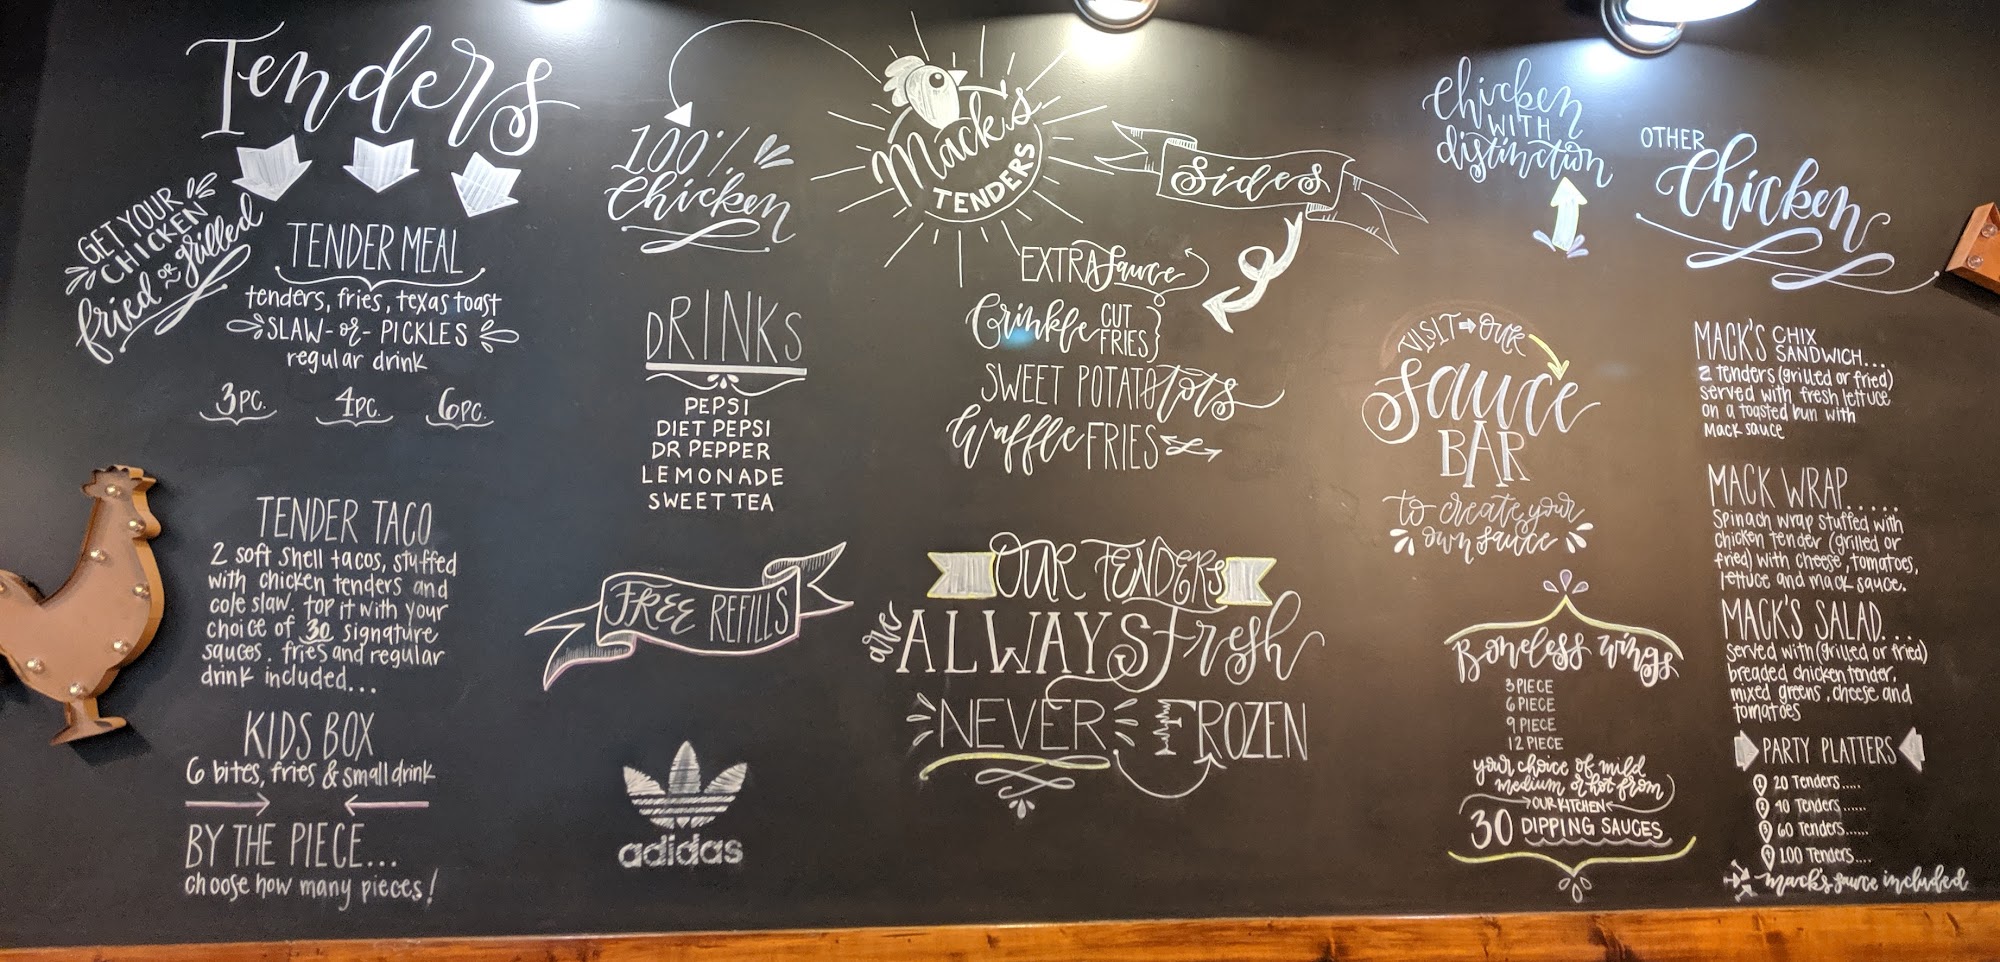 Tenders
GET YOUR
CHICKEN
fried OR grilled
TENDER MEAL
tenders, fries, texas toast
SLAW -or- PICKLES
regular drink
3PC. 4PC. 6PC.
TENDER TACO
2 soft shell tacos, stuffed
with chicken tenders and
cole slaw. top it with your
choice of 30 signature
sauces. fries and regular
drink included...
KIDS BOX
6 bites, fries & small drink
BY THE PIECE...
choose how many pieces!
100%
Chicken
DRINKS
PEPSI
DIET PEPSI
DR PEPPER
LEMONADE
SWEET TEA
FREE REFILLS
adidas
Mack's
TENDERS
Sides
EXTRA Sauce
Crinkle CUT FRIES
SWEET POTATO tots
Waffle FRIES
OUR TENDERS
are ALWAYS Fresh
NEVER FROZEN
Chicken
WITH
distinction
VISIT OUR
Sauce
BAR
to create your
own sauce
Boneless wings
3 PIECE
6 PIECE
9 PIECE
12 PIECE
your choice of mild
medium or hot from
OUR KITCHEN
30 DIPPING SAUCES
OTHER
Chicken
MACK'S CHIX
SANDWICH....
2 tenders (grilled or fried)
served with fresh lettuce
on a toasted bun with
Mack sauce
MACK WRAP.....
Spinach wrap stuffed with
chicken tender (grilled or
fried) with cheese, tomatoes,
lettuce and mack sauce.
MACK'S SALAD....
served with (grilled or fried)
breaded chicken tender,
mixed greens, cheese and
tomatoes
PARTY PLATTERS
1 20 Tenders.....
2 40 Tenders......
3 60 Tenders......
4 100 Tenders....
mack's sauce included